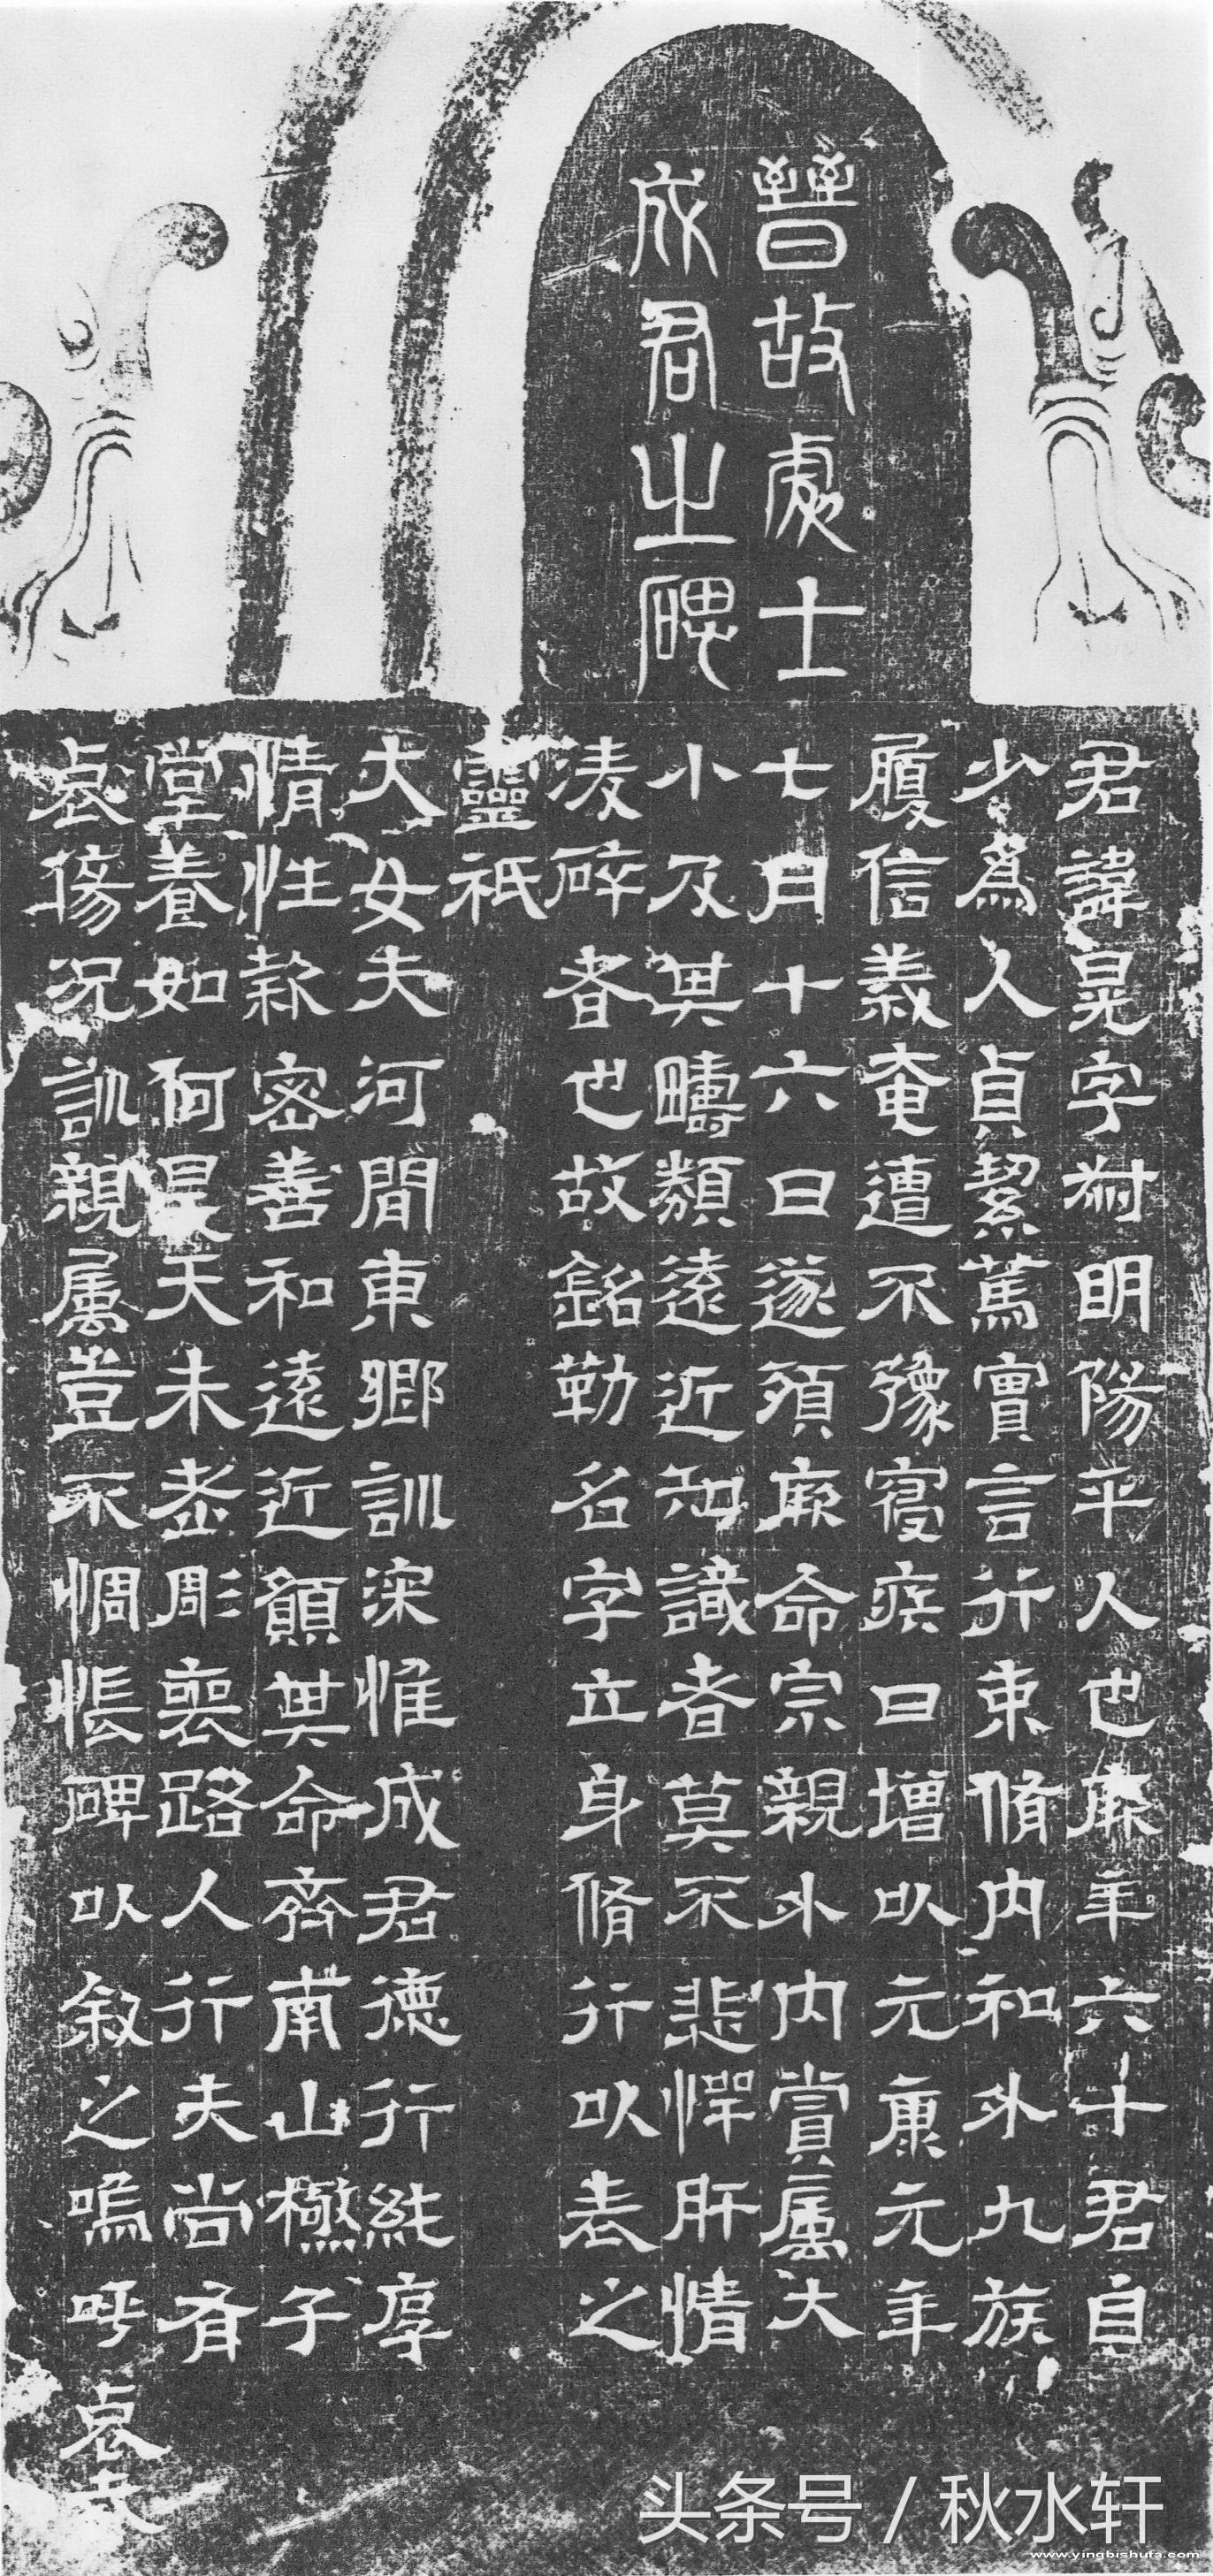 晉故處士
成君之碑
君諱晃字叔明陽平人也厥年六十君自
少爲人貞絜篤實言行東脩内和外九族
履信義奄遭不豫寢疾日增以元康元年
七月十六日遂殞厥命宗親外内賞属大
小及其疇類遠近知識者莫不悲憚肝情
淩碎者也故銘勒名字立身脩行以表之
靈祇
大女夫河間東鄉訓深惟成君德行純厚
情性款密善和遠近願其命齊南山橅子
堂養如何昊天未老彫喪路人行夫尚有
哀傷况訓親属豈不惆悵碑以敘之嗚呼哀哉
头条号 / 秋水轩
www.yingbishufa.com